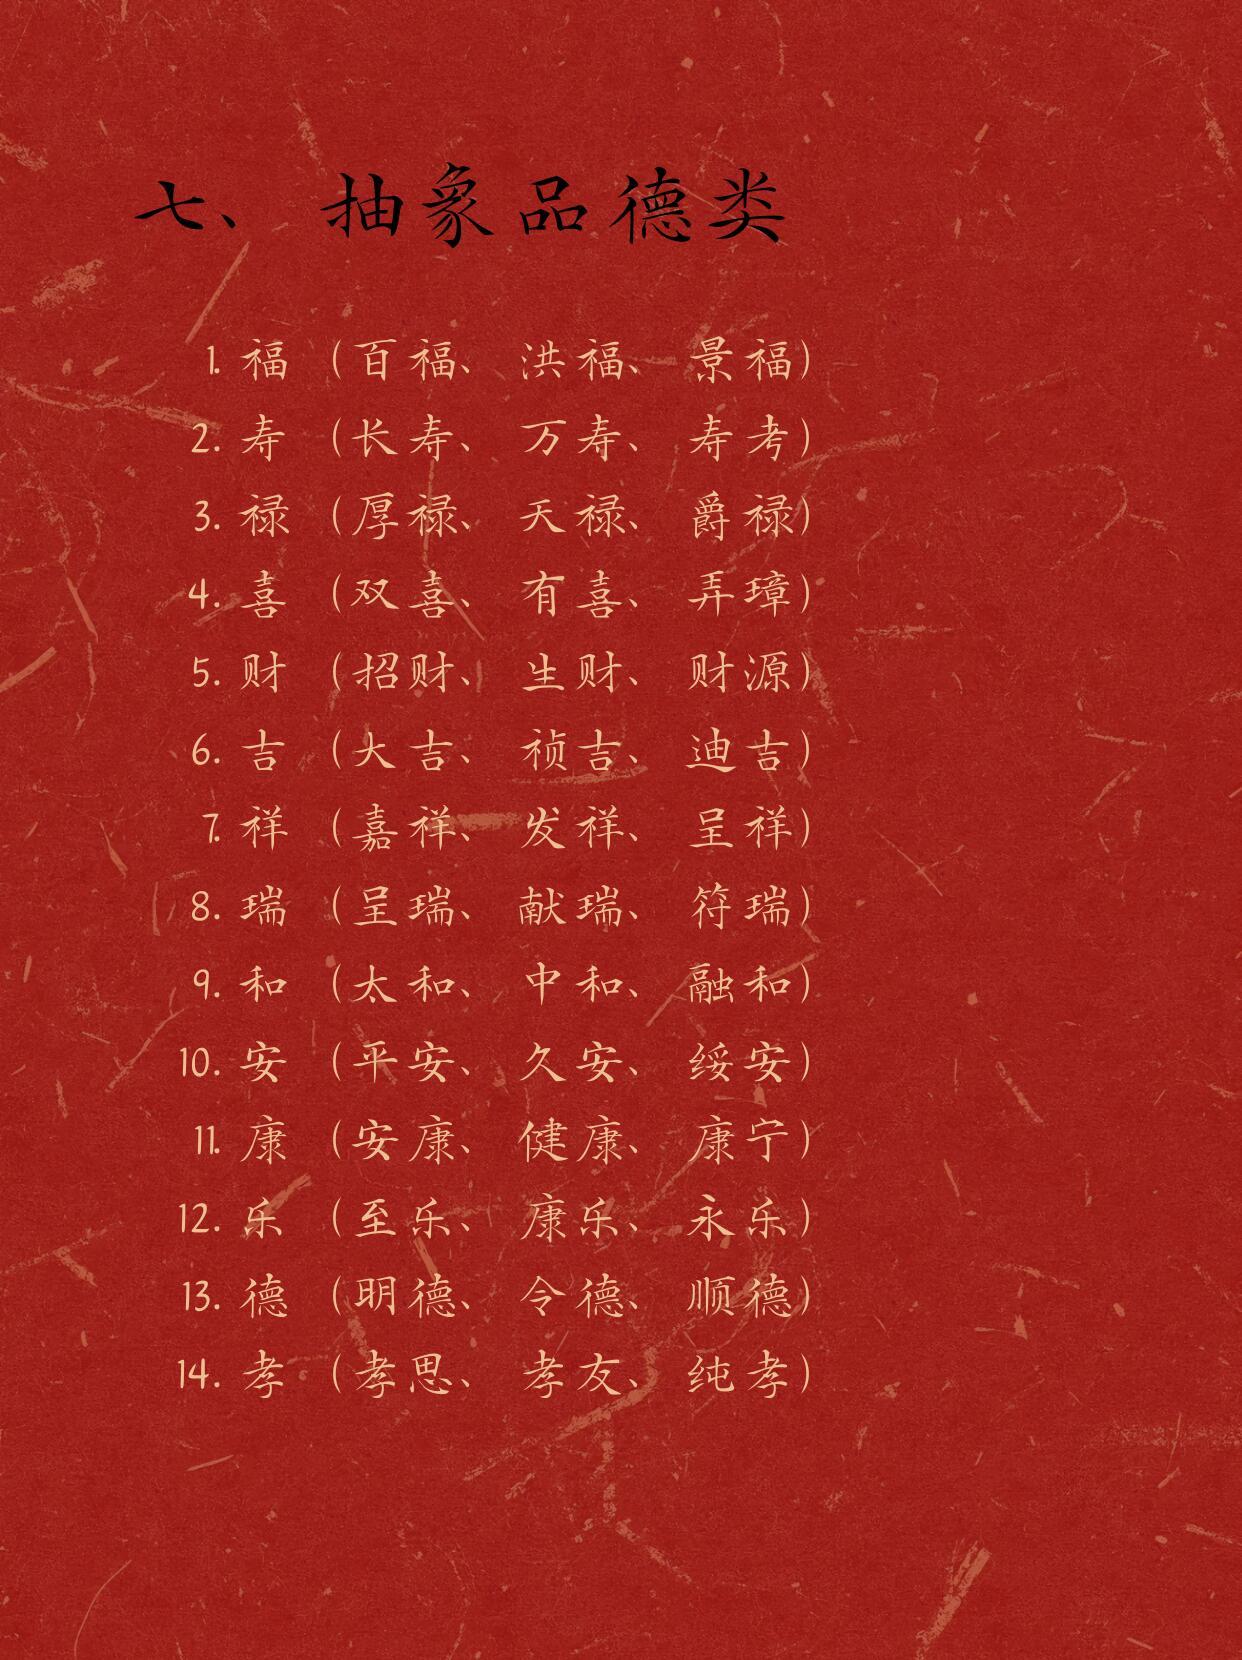 七、 抽象品德类
1. 福 (百福、 洪福、 景福)
2. 寿 (长寿、 万寿、 寿考)
3. 禄 (厚禄、 天禄、 爵禄)
4. 喜 (双喜、 有喜、 弄璋)
5. 财 (招财、 生财、 财源)
6. 吉 (大吉、 祯吉、 迪吉)
7. 祥 (嘉祥、 发祥、 呈祥)
8. 瑞 (呈瑞、 献瑞、 符瑞)
9. 和 (太和、 中和、 融和)
10. 安 (平安、 久安、 绥安)
11. 康 (安康、 健康、 康宁)
12. 乐 (至乐、 康乐、 永乐)
13. 德 (明德、 令德、 顺德)
14. 孝 (孝思、 孝友、 纯孝)